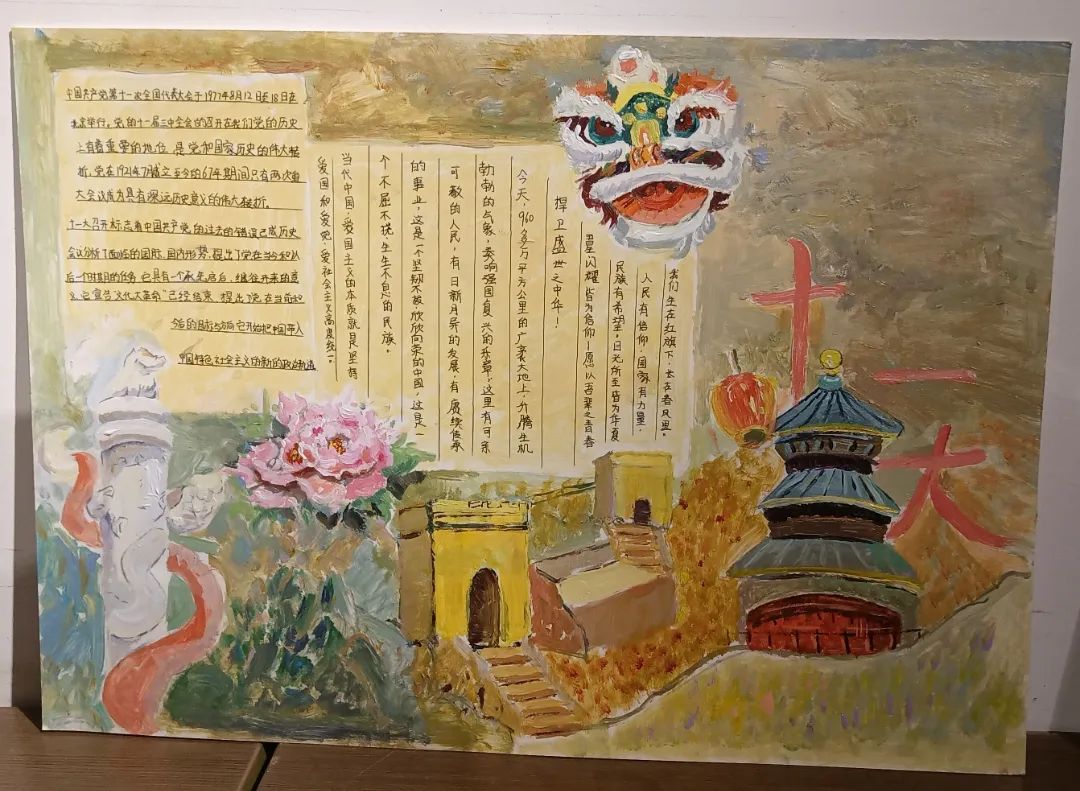 中国共产党第十一次全国代表大会于1977年8月12日至18日在
北京举行。党的十一届三中全会的召开在我们党的历史
上有着重要的地位,是党和国家历史的伟大转
折。党在1921年7月成立至今的67年期间只有两次重
大会议成为具有深远历史意义的伟大转折。
十一大召开标志着中国共产党的过去的错误已成历史
会议分析了面临的国际、国内形势,提出了党在当今和以
后一个时期的任务,它具有一个承先启后,继往开来的意
义,它宣告文化大革命已经结束,提出了党在当前和
今后的目标与方向,它开始把中国带入
中国特色社会主义历新的政治轨道
我们生在红旗下,长在春风里。
人民有信仰,国家有力量,
民族有希望。目光所至皆为华夏
星闪耀皆为信仰!愿以吾辈之青春
捍卫盛世之中华!
今天,960多万平方公里的广袤大地上,升腾生机
勃勃的气象,奏响强国复兴的乐章。这里有可亲
可敬的人民,有日新月异的发展,有赓续传承
的事业。这是一个坚韧不拔欣欣向荣的中国,这是一
个不屈不挠生生不息的民族。
当代中国,爱国主义的本质就是坚持
爱国和爱党、爱社会主义高度统一。
十一大